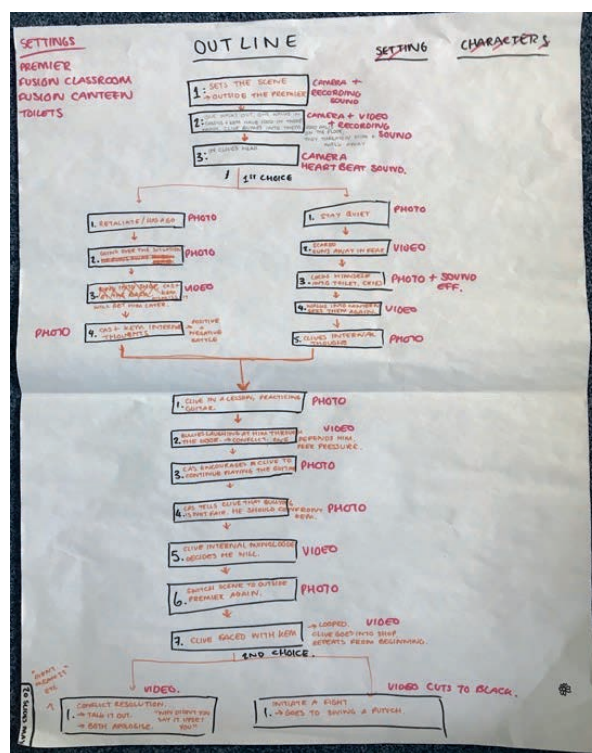 SETTINGS
PREMIER
FUSION CLASSROOM
FUSION CANTEEN
TOILETS
OUTLINE
SETTING
CHARACTERS
1: SETS THE SCENE
→ OUTSIDE THE PREMIER
CAMERA +
RECORDING
SOUND
2:
CLIVE BUMPS INTO THEM
CAMERA + VIDEO
+ RECORDING
SOUND
3: IN CLIVES HEAD
CAMERA
HEARTBEAT SOUND.
1ST CHOICE
1. RETALIATE /
PHOTO
2. THE SITUATION
PHOTO
3.
VIDEO
WILL GET HIM LATER.
PHOTO
4. CAS + KEM INTERNAL
THOUGHTS
→ POSITIVE
NEGATIVE
BATTLE
1. STAY QUIET
PHOTO
2. SCARED
RUNS AWAY IN FEAR
VIDEO
3. LOCKS HIMSELF
INTO TOILET, CRIES
PHOTO + SOUND
EFF.
4. WALKS INTO CANTEEN
SEES THEM AGAIN.
VIDEO
5. CLIVES INTERNAL
THOUGHTS
PHOTO
1. CLIVE IN A LESSON, PRACTICING
GUITAR.
PHOTO
2. BULLIES LAUGHING AT HIM THROUGH
THE DOOR. → CONFLICT, ONE DEFENDS HIM,
PEER PRESSURE.
VIDEO
3. CAS ENCOURAGES CLIVE TO
CONTINUE PLAYING THE GUITAR
PHOTO
4. CAS TELLS CLIVE THAT BULLYING
ISN'T FAIR. HE SHOULD CONFRONT
KEM.
PHOTO
5. CLIVE INTERNAL MONOLOGUE
DECIDES HE WILL.
VIDEO
6. SWITCH SCENE TO OUTSIDE
PREMIER AGAIN.
PHOTO
7. CLIVE FACED WITH KEM
→ LOOPED. VIDEO
CLIVE GOES INTO SHOP
REPEATS FROM BEGINNING.
2ND CHOICE.
VIDEO.
1. CONFLICT RESOLUTION.
→ TALK IT OUT.
→ BOTH APOLOGISE.
"WHY DIDN'T YOU
SAY IT UPSET
YOU?"
VIDEO CUTS TO BLACK.
INITIATE A FIGHT
1. → GOES TO SWING A PUNCH.
20 SLIDES MAX